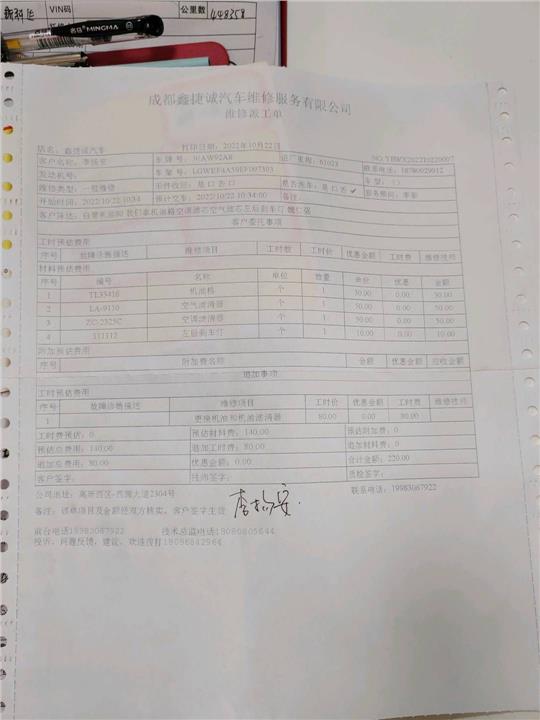 VIN码 公里数 448358
MINGMA
成都鑫捷诚汽车维修服务有限公司
维修派工单
店名：鑫捷诚汽车 打印日期：2022年10月22日
客户名称： 车牌号：川AW92AR 进厂里程：61023
发动机号： 车架号： 联系电话：18780029012
维修类型：一般维修 旧件收回：是口否口 是否洗车：是口否 ✓ 车型：（）
开始时间：2022/10/22 10:34 预计交车：2022/10/22 10:34:00 备注： 服务顾问：李彩
客户陈述：自带机油和 我们拿机油格空调滤芯空气滤芯左后刹车灯
客户委托事项
工时预估费用
序号 故障诊断描述 维修项目 工时数 工时价 优惠金额 工时费 维修技师
材料预估费用
序号 编号 名称 单位 数量 单价 优惠 金额
1 TL33416 机油格 个 1 30.00 0.00 30.00
2 LA-9110 空气滤清器 个 1 50.00 0.00 50.00
3 ZC-2325C 空调滤清器 个 1 50.00 0.00 50.00
4 111112 左后刹车灯 个 1 10.00 0.00 10.00
附加预估费用
序号 附加费名称 金额 优惠金额 应收金额
追加事项
工时预估费用
序号 故障诊断描述 维修项目 工时价 优惠金额 工时费 维修技师
1 更换机油和机油滤清器 80.00 0.00 80.00
工时费预估：0 预估材料费：140.00 预估附加费：0
预估总费用：140.00 追加工时费：80.00 追加材料费：0
追加总费用：80.00 优惠金额：0.00 合计金额：220.00
客户签字： 技师签字： 质检签字：
公司地址：高新西区-西源大道2304号 联系电话：19983067922
备注：该单项目及金额经双方核实，客户签字生效
前台电话19983067922 技术总监电话18080805644
投诉、问题反馈、建议，欢迎拨打18086842964